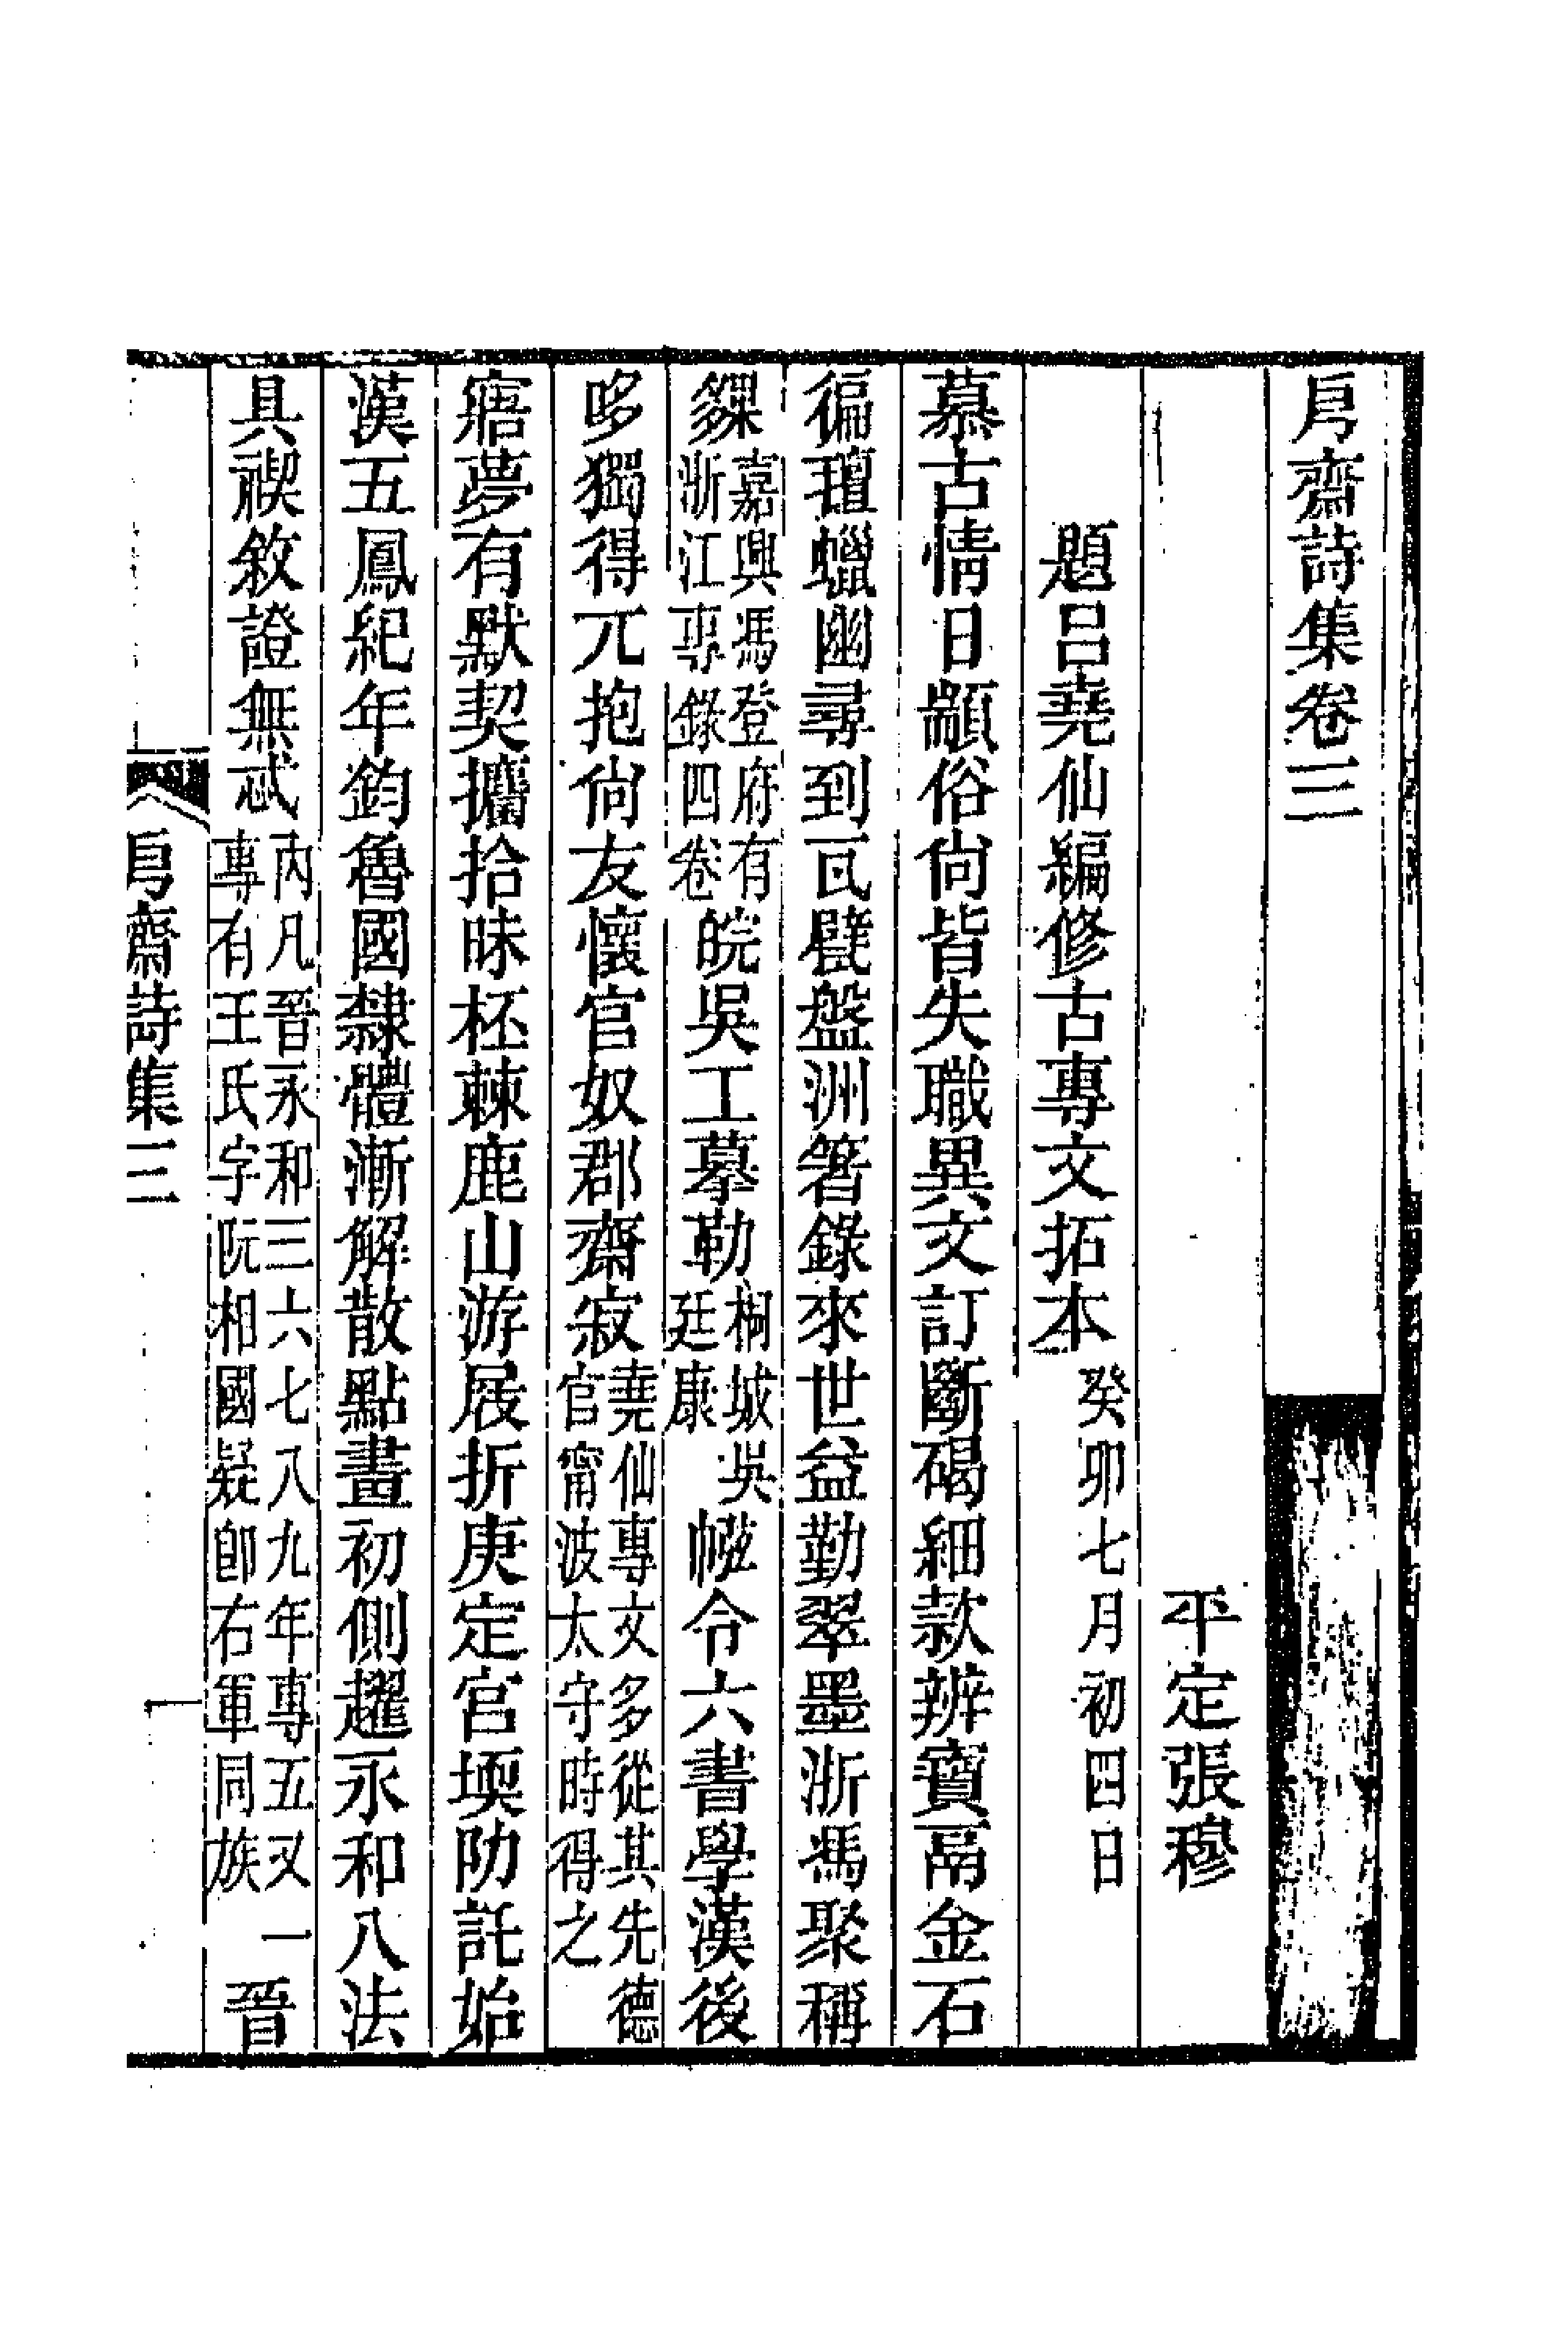 㐆齋詩集卷三
平定張穆
題吕堯仙編修古專文拓本癸卯七月初四日
慕古情日顓俗尙皆失職異文訂斷碣細款辨寶鬲金石
徧氊蠟幽尋到瓦甓盤洲箸錄來世益勤翠墨浙馮聚稱
夥嘉興馮登府有浙江專錄四卷皖吳工摹勒桐城吳廷康㡧令六書學漢後
哆獨得兀抱尙友懷官奴郡齋寂堯仙專文多從其先德官甯波太守時得之
寤夢有默契攟拾昧柸棘鹿山游屐折庚定宮堧阞託始
漢五鳳紀年鈞魯國隸體漸解散點畫初側趯永和八法
具禊敘證無忒丙凡晉永和三六七八九年專五又一專有王氏字阮相國疑卽右軍同族晉
㐆齋詩集三
一